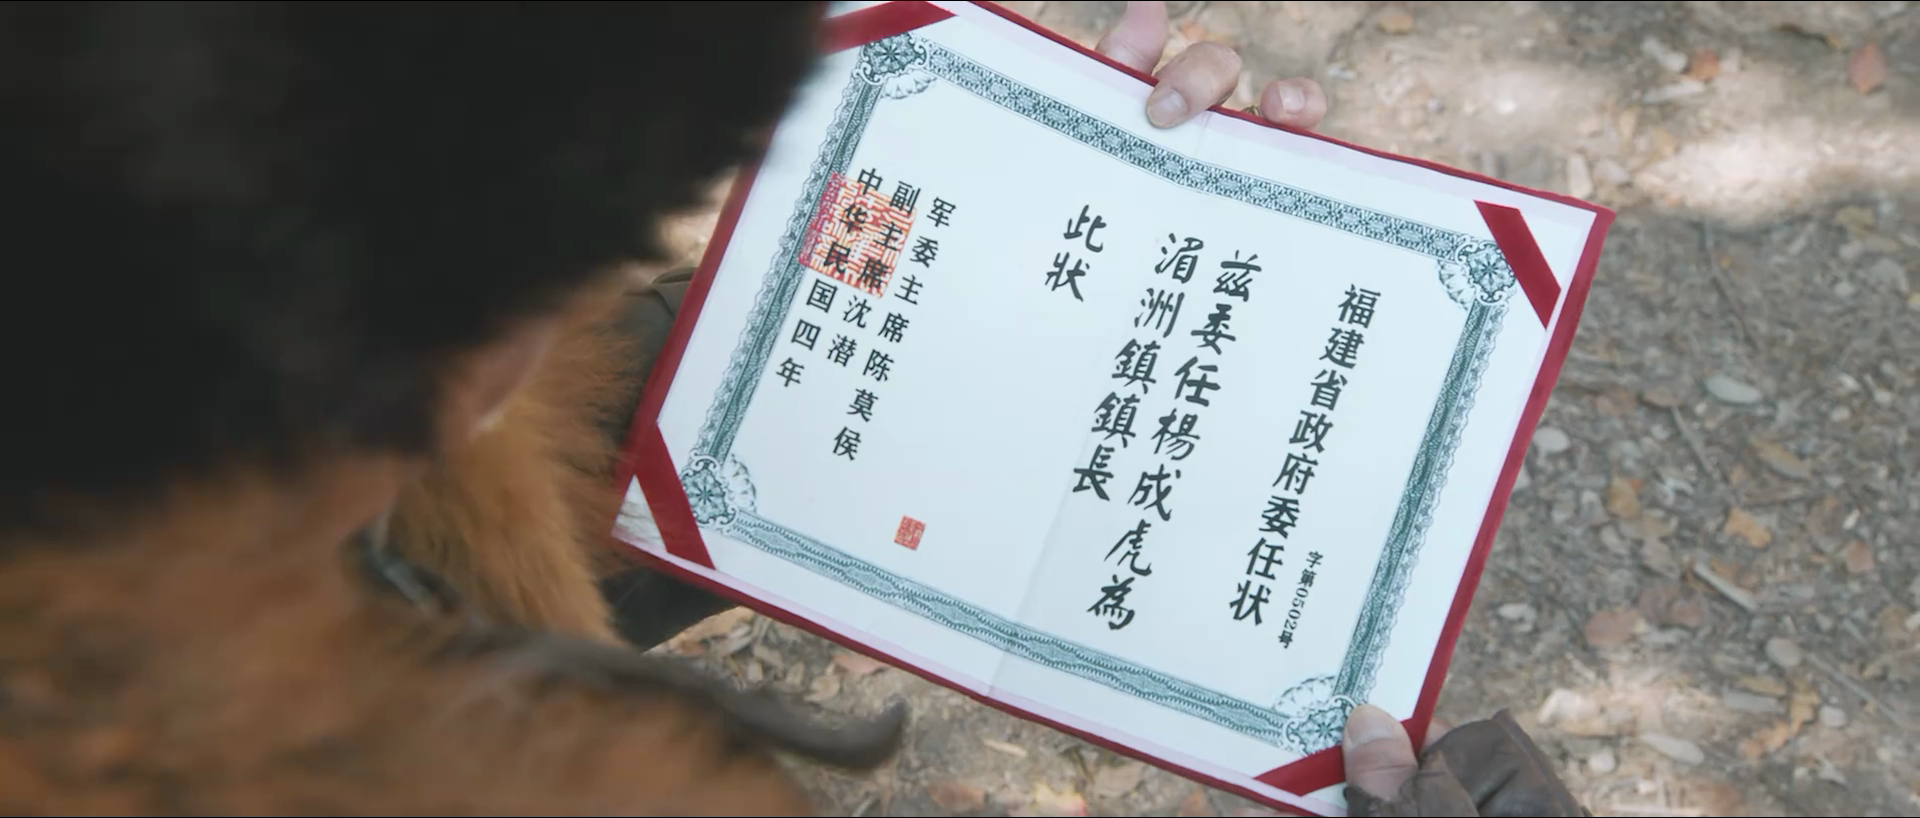 福建省政府委任状
字第0502号
兹委任楊成虎為
湄洲鎮鎮長
此狀
军委主席陈莫侯
副主席沈潜
中华民国四年